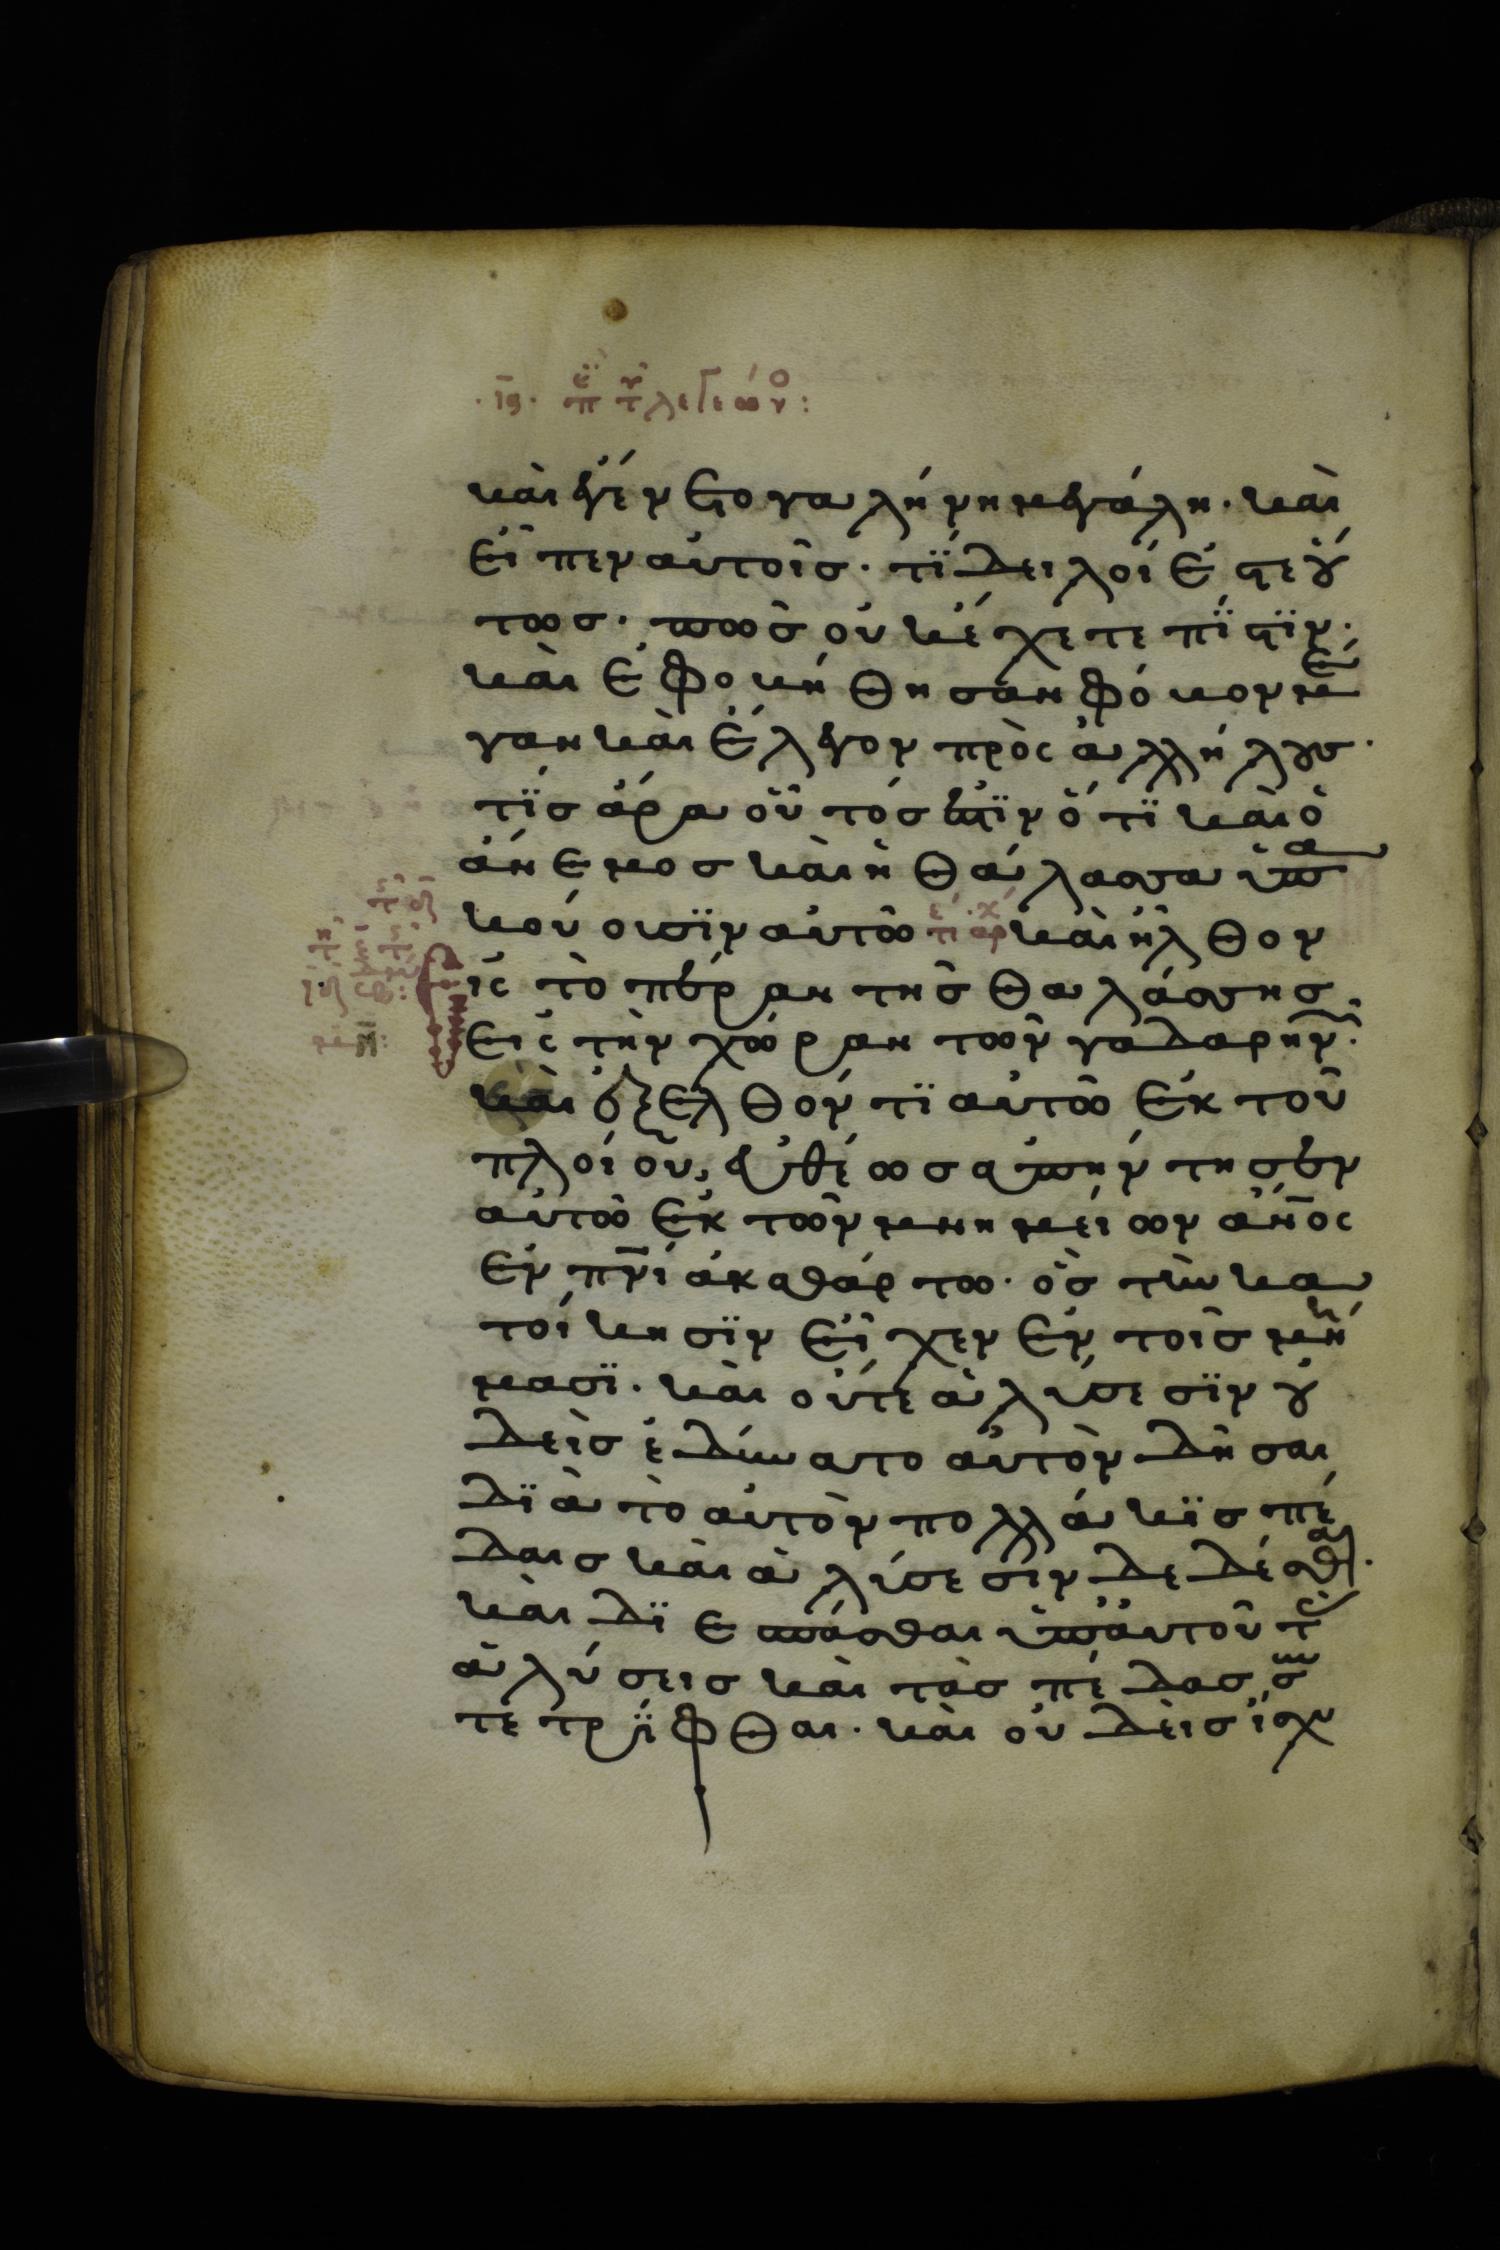 ·ιϛ· περὶ τ λεγεῶνο:
καὶ ἐγένετο γαλήνη μεγάλη· καὶ
εἶπεν αὐτοῖσ· τϊ δειλοί ἐστε οὕ
τωσ· πῶσ οὐκ ἔχετε πϊστϊν·
καὶ ἐφοβήθησαν φόβον μέ
γαν καὶ ἔλεγον πρὸς ἀλλήλουσ·
τϊσ ἄρα οὗτόσ ἐστϊν ὅτϊ καὶ ὁ
ἄνεμοσ καὶ ἡ θάλασσα ὑπα
κούουσϊν αὐτῶ καὶ ἦλθον
ις τὸ πέραν τῆσ θαλάσσησ
εἰς τὴν χώραν τῶν γαδαρηνῶν·
καὶ ἐξελθόντϊ αὐτῶ ἐκ τοῦ
πλοίου, εὐθέωσ ἀπήντησεν
αὐτῶ ἐκ τῶν μνημείων ἄν̅ος
ἐν πν̅ι ἀκαθάρτω· ὃσ τὴν κα
τοίκησϊν εἶχεν ἐν τοῖσ μνή
μασϊ· καὶ οὔτε ἁλύσεσϊν οὐ
δεὶσ ἐδύνατο αὐτὸν δῆσαι
δϊὰ τὸ αὐτὸν πολλάκϊσ πέ
δαισ καὶ ἁλύσεσϊν δεδέσθαι·
καὶ δϊεσπάσθαι ὑπ' αὐτοῦ τὰσ
ἁλύσεισ καὶ τὰσ πέδασ συν
τετρϊφθαι· καὶ οὐδεὶσ ἴσχυ